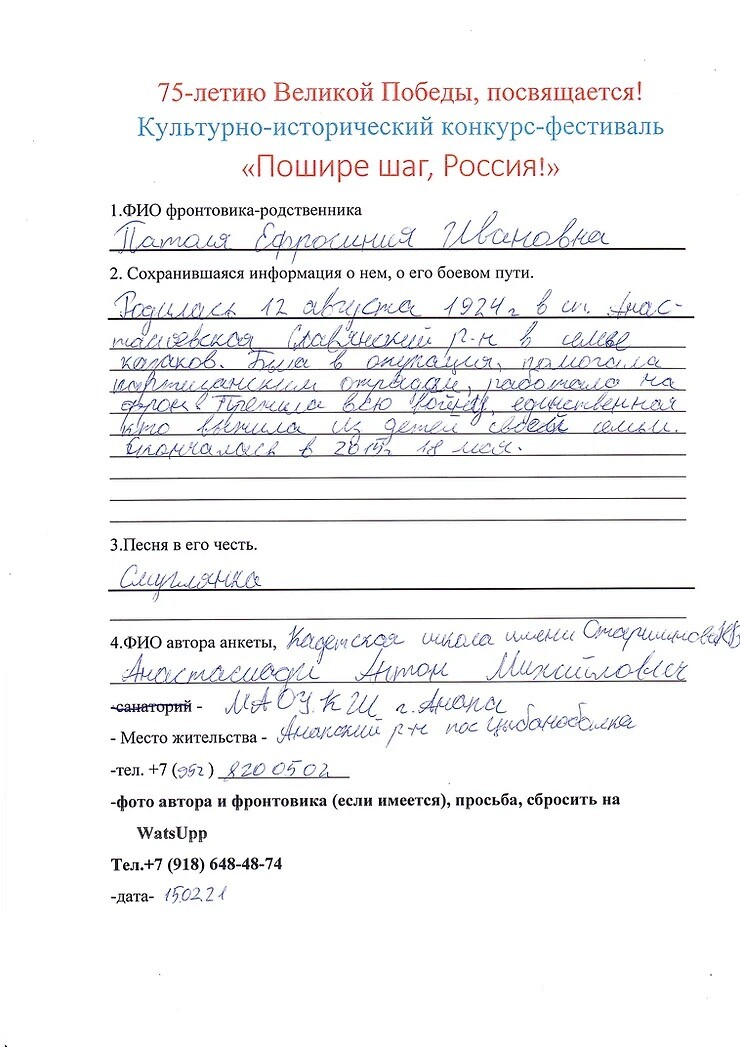 75-летию Великой Победы, посвящается!
Культурно-исторический конкурс-фестиваль
«Пошире шаг, Россия!»
1.ФИО фронтовика-родственника
Ефросиния Ивановна
2. Сохранившаяся информация о нем, о его боевом пути.
Родилась 12 августа 1924г в ст. Анас-
тасиевская Славянский р-н в семье
казаков. Была в окупация, помогала
партизанским отрядам, работала на
фронт. Прожила всю войну, единственная
кто выжила из детей своей семьи.
Скончалась в 18 мая.
3.Песня в его честь.
Смуглянка
4.ФИО автора анкеты, Кадетская школа имени
Антон Михайлович
-санаторий - МАОУ КШ г.Анапа
- Место жительства - Анапский р-н пос Цыбанобалка
-тел. +7 (952) 8200502
-фото автора и фронтовика (если имеется), просьба, сбросить на
WatsUpp
Тел.+7 (918) 648-48-74
-дата- 15.02.21